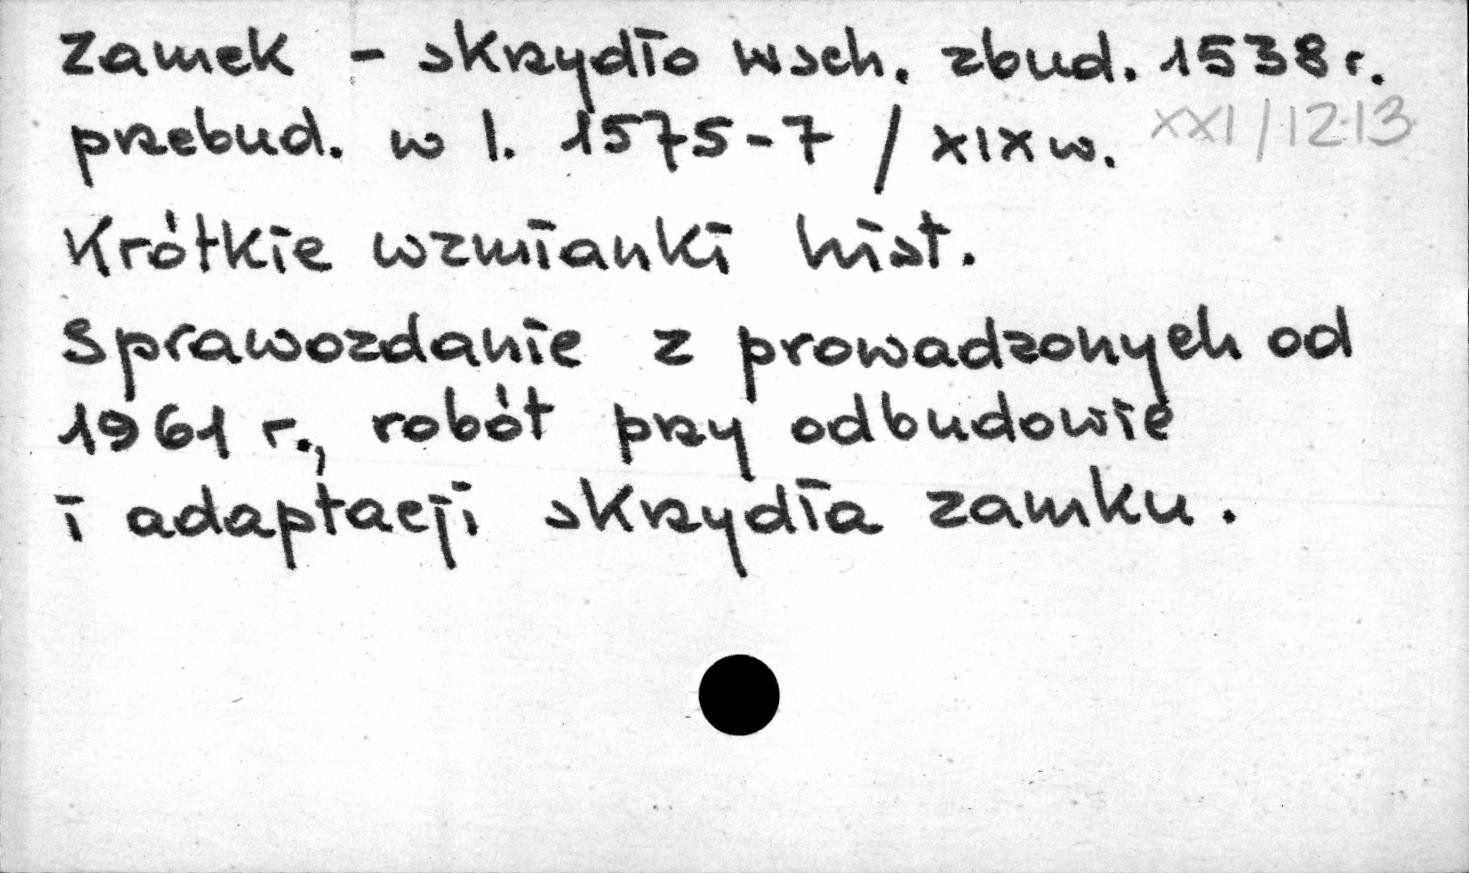 Zamek - skrzydło wsch. zbud. 1538 r.
przebud. w l. 1575-7 / XIX w. XXI/1213
Krótkie wzmianki hist.
Sprawozdanie z prowadzonych od
1961 r., robót przy odbudowie
i adaptacji skrzydła zamku.